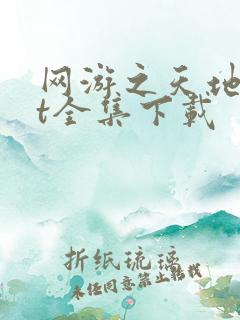 网游之天地
t全集下载
折纸琉璃
未经同意禁止转载